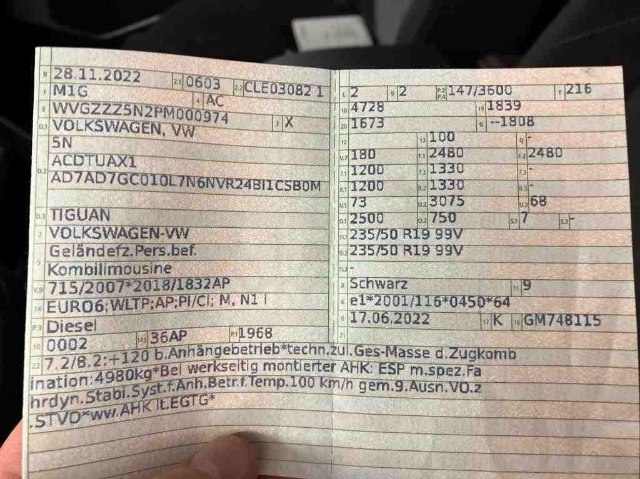 B 28.11.2022 2.1 0603 2.2 CLE03082 1
J M1G 4 AC
E WVGZZZ5N2PM000974 3 X
D.1 VOLKSWAGEN, VW
5N
D.2 ACDTUAX1
AD7AD7GC010L7N6NVR24BI1CSB0M
D.3 TIGUAN
2 VOLKSWAGEN-VW
5 Geländefz.Pers.bef.
Kombilimousine
V.9 715/2007*2018/1832AP
14 EURO6;WLTP;AP;PI/CI; M, N1 I
P.3 Diesel
10 0002 14.1 36AP P.1 1968
L 2 9 2 P.2 P.4 147/3600 T 216
18 4728 19 1839
20 1673 G --1808
12 - 13 100 Q -
V.7 180 F.1 2480 F.2 2480
7.1 1200 7.2 1330 7.3 -
8.1 1200 8.2 1330 8.3 -
U.1 73 U.2 3075 U.3 68
O.1 2500 O.2 750 S.1 7 S.2 -
15.1 235/50 R19 99V
15.2 235/50 R19 99V
15.3 -
R Schwarz 11 9
K e1*2001/116*0450*64
6 17.06.2022 17 K 16 GM748115
21
22 7.2/8.2:+120 b.Anhängebetrieb*techn.zul.Ges-Masse d.Zugkomb
ination:4980kg*Bei werkseitig montierter AHK: ESP m.spez.Fa
hrdyn.Stabi.Syst.f.Anh.Betr.f.Temp.100 km/h gem.9.Ausn.VO.z
.STVO*ww.AHK lt.EGTG*